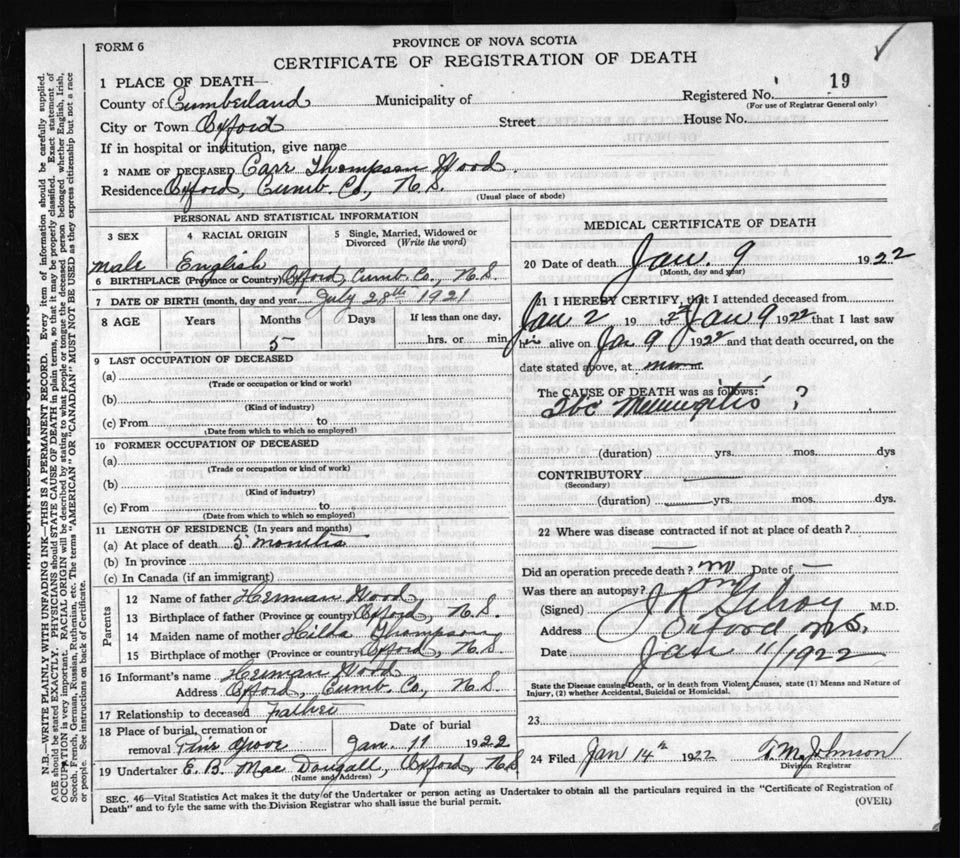 FORM 6
PROVINCE OF NOVA SCOTIA
CERTIFICATE OF REGISTRATION OF DEATH
1 PLACE OF DEATH—
Registered No. 19
(For use of Registrar General only)
County of Cumberland Municipality of
City or Town Oxford Street House No.
If in hospital or institution, give name
2 NAME OF DECEASED Carr Thompson Wood
Residence Oxford, Cumb. Co., N.S.
(Usual place of abode)
PERSONAL AND STATISTICAL INFORMATION
3 SEX 4 RACIAL ORIGIN 5 Single, Married, Widowed or Divorced (Write the word)
male English
6 BIRTHPLACE (Province or Country) Oxford, Cumb. Co., N.S.
7 DATE OF BIRTH (month, day and year) July 28th 1921
8 AGE Years Months Days If less than one day,
5 hrs. or min.
9 LAST OCCUPATION OF DECEASED
(a)
(Trade or occupation or kind or work)
(b)
(Kind of industry)
(c) From to
(Date from which to which so employed)
10 FORMER OCCUPATION OF DECEASED
(a)
(Trade or occupation or kind or work)
(b)
(Kind of industry)
(c) From to
(Date from which to which so employed)
11 LENGTH OF RESIDENCE (In years and months)
(a) At place of death 5 months
(b) In province
(c) In Canada (if an immigrant)
Parents
12 Name of father Herman Wood
13 Birthplace of father (Province or country) Oxford, N.S.
14 Maiden name of mother Hilda Thompson
15 Birthplace of mother (Province or country) Oxford, N.S.
16 Informant's name Herman Wood
Address Oxford, Cumb. Co., N.S.
17 Relationship to deceased Father
18 Place of burial, cremation or Date of burial
removal Pine Grove Jan. 11 1922
19 Undertaker E. B. Mac Dougall, Oxford, N.S
(Name and Address)
MEDICAL CERTIFICATE OF DEATH
20 Date of death Jan. 9 1922
(Month, day and year)
21 I HEREBY CERTIFY, that I attended deceased from
Jan 2 19 to Jan 9 1922 that I last saw
his alive on Jan 9 1922 and that death occurred, on the
date stated above, at m.
The CAUSE OF DEATH was as follows:
Tbc Meningitis ?
(duration) yrs. mos. dys
CONTRIBUTORY
(Secondary)
(duration) yrs. mos. dys.
22 Where was disease contracted if not at place of death?
Did an operation precede death? no Date of —
Was there an autopsy? no
(Signed) J R Gilroy M.D.
Address Oxford N.S.
Date Jan 11/1922
State the Disease causing Death, or in death from Violent Causes, state (1) Means and Nature of
Injury, (2) whether Accidental, Suicidal or Homicidal.
23
24 Filed Jan 14th 1922 Johnson
Division Registrar
SEC. 46—Vital Statistics Act makes it the duty of the Undertaker or person acting as Undertaker to obtain all the particulars required in the "Certificate of Registration of
Death" and to fyle the same with the Division Registrar who shall issue the burial permit.
(OVER)
N.B.—WRITE PLAINLY WITH UNFADING INK—THIS IS A PERMANENT RECORD. Every item of information should be carefully supplied.
AGE should be stated EXACTLY. PHYSICIANS should STATE CAUSE OF DEATH in plain terms, so that it may be properly classified. Exact statement of
OCCUPATION is very important. RACIAL ORIGIN will be described by stating to what people or tongue the deceased person belonged whether English, Irish,
Scotch, French, German, Russian, Ruthenian, etc. The terms "AMERICAN" OR "CANADIAN" MUST NOT BE USED as they express citizenship but not a race
or people. See instructions on back of Certificate.